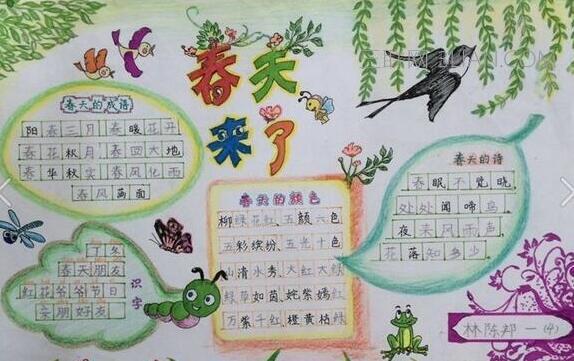 春天
来了
春天的成语
阳春三月 春暖花开
春花秋月 春回大地
春华秋实 春风化雨
春风满面
春天的颜色
柳绿花红、五颜六色
五彩缤纷、五光十色
山清水秀、大红大绿
绿草如茵 姹紫嫣红
万紫千红 橙黄桔绿
春天的诗
春眠不觉晓,
处处闻啼鸟。
夜来风雨声,
花落知多少。
识字
丁冬
春天朋友
红花爷爷节日
亲朋好友
林陈郑 一(4)